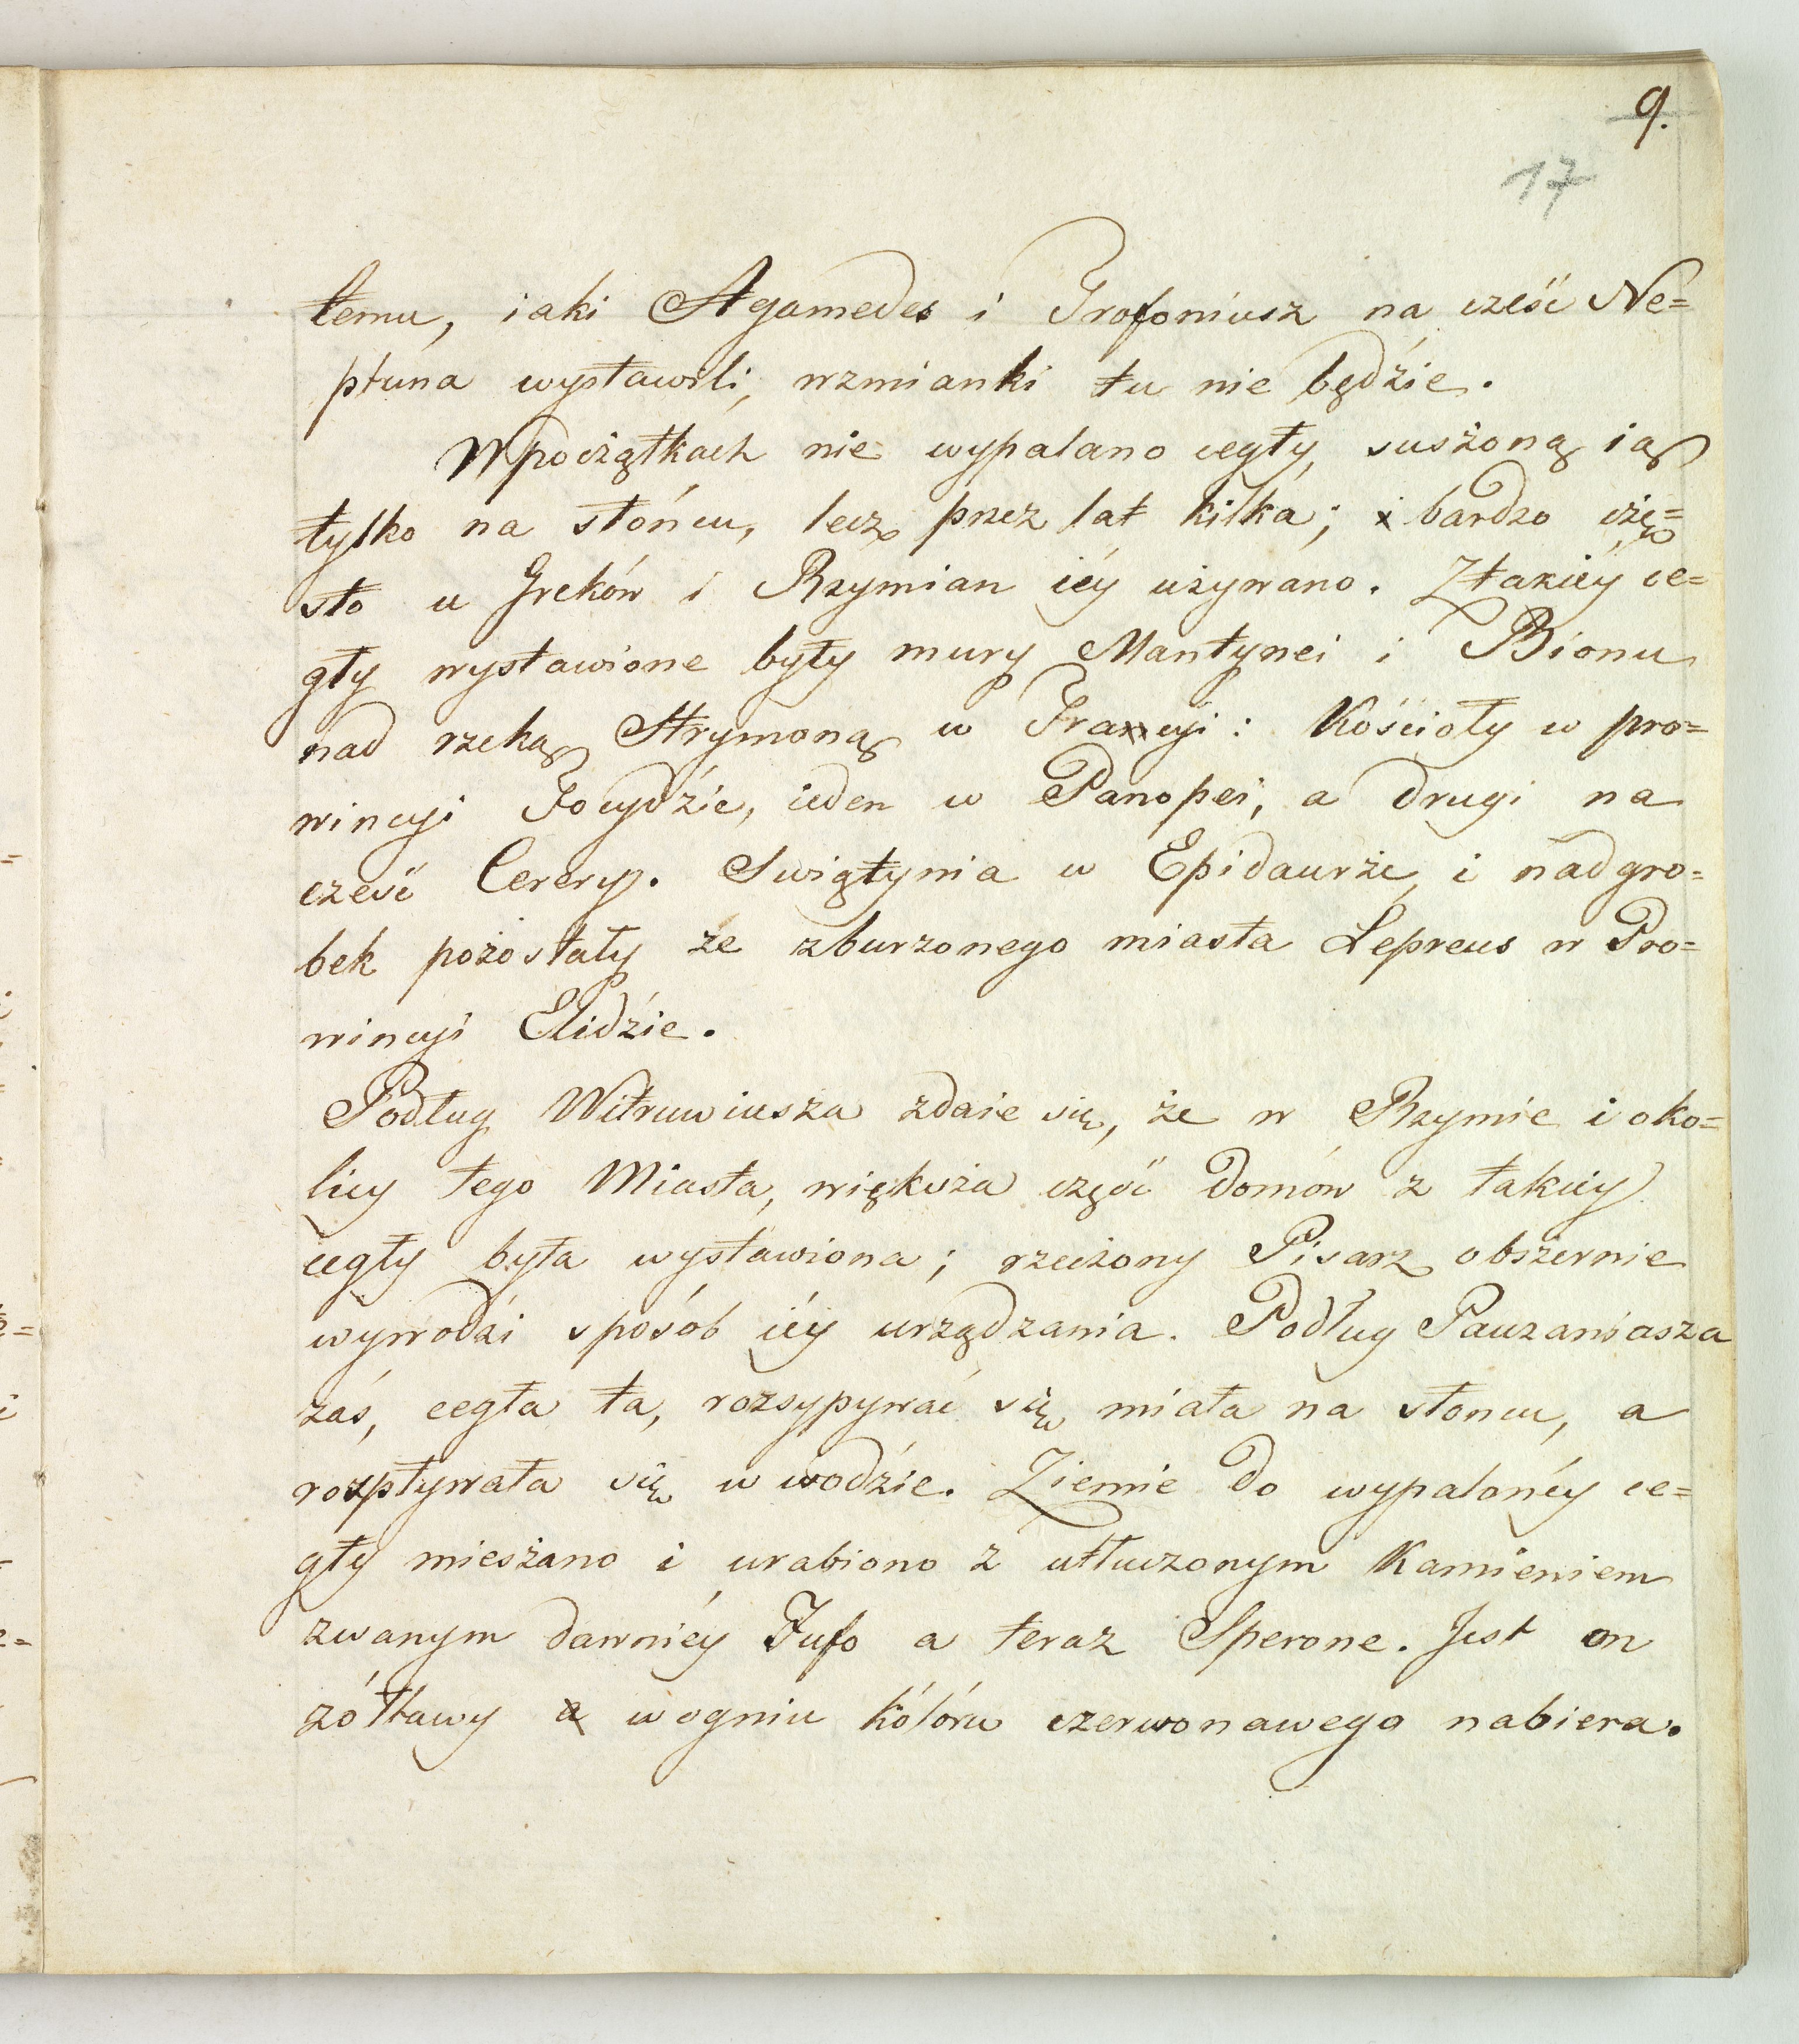 9.
17
temu, iaki Agamedes i Trofoniusz na cześć Ne=
ptuna wystawili, wzmianki tu nie będzie.
W początkach nie wypalano cegły, suszoną ią
tylko na słońcu, lecz przez lat kilka; i bardzo czę=
sto u Greków i Rzymian iéy używano. Z takiéy ce=
gły wystawione były mury Mantynei i Bionu
nad rzeką Strymoną w Tracyi: Kościoły w pro=
wincyi Focydźie, ieden w Panopei, a drugi na
cześć Cerery. Swiątynia w Epidaurże, i nadgro=
bek pozostały ze zburzonego miasta Lepreus w Pro=
wincyi Elidźie.
Podług Witruwiusza zdaie się, że w Rzymie i oko=
licy tego Miasta, większa część domów z takiéy
cegły była wystawiona; rzeczony Pisarz obszernie
wywodzi sposób iéy urządzania. Podług Pauzaniasza
zaś, cegła ta, rozsypywać się miała na słoncu, a
rozpływała się w wodzie. Ziemie do wypalonéy ce=
gły mieszano i urabiono z utłuczonym Kamieniem
zwanym dawniéy Tufo a teraz Sperone. Jest on
zółtawy a w ogniu kóloru czerwonawego nabiera.